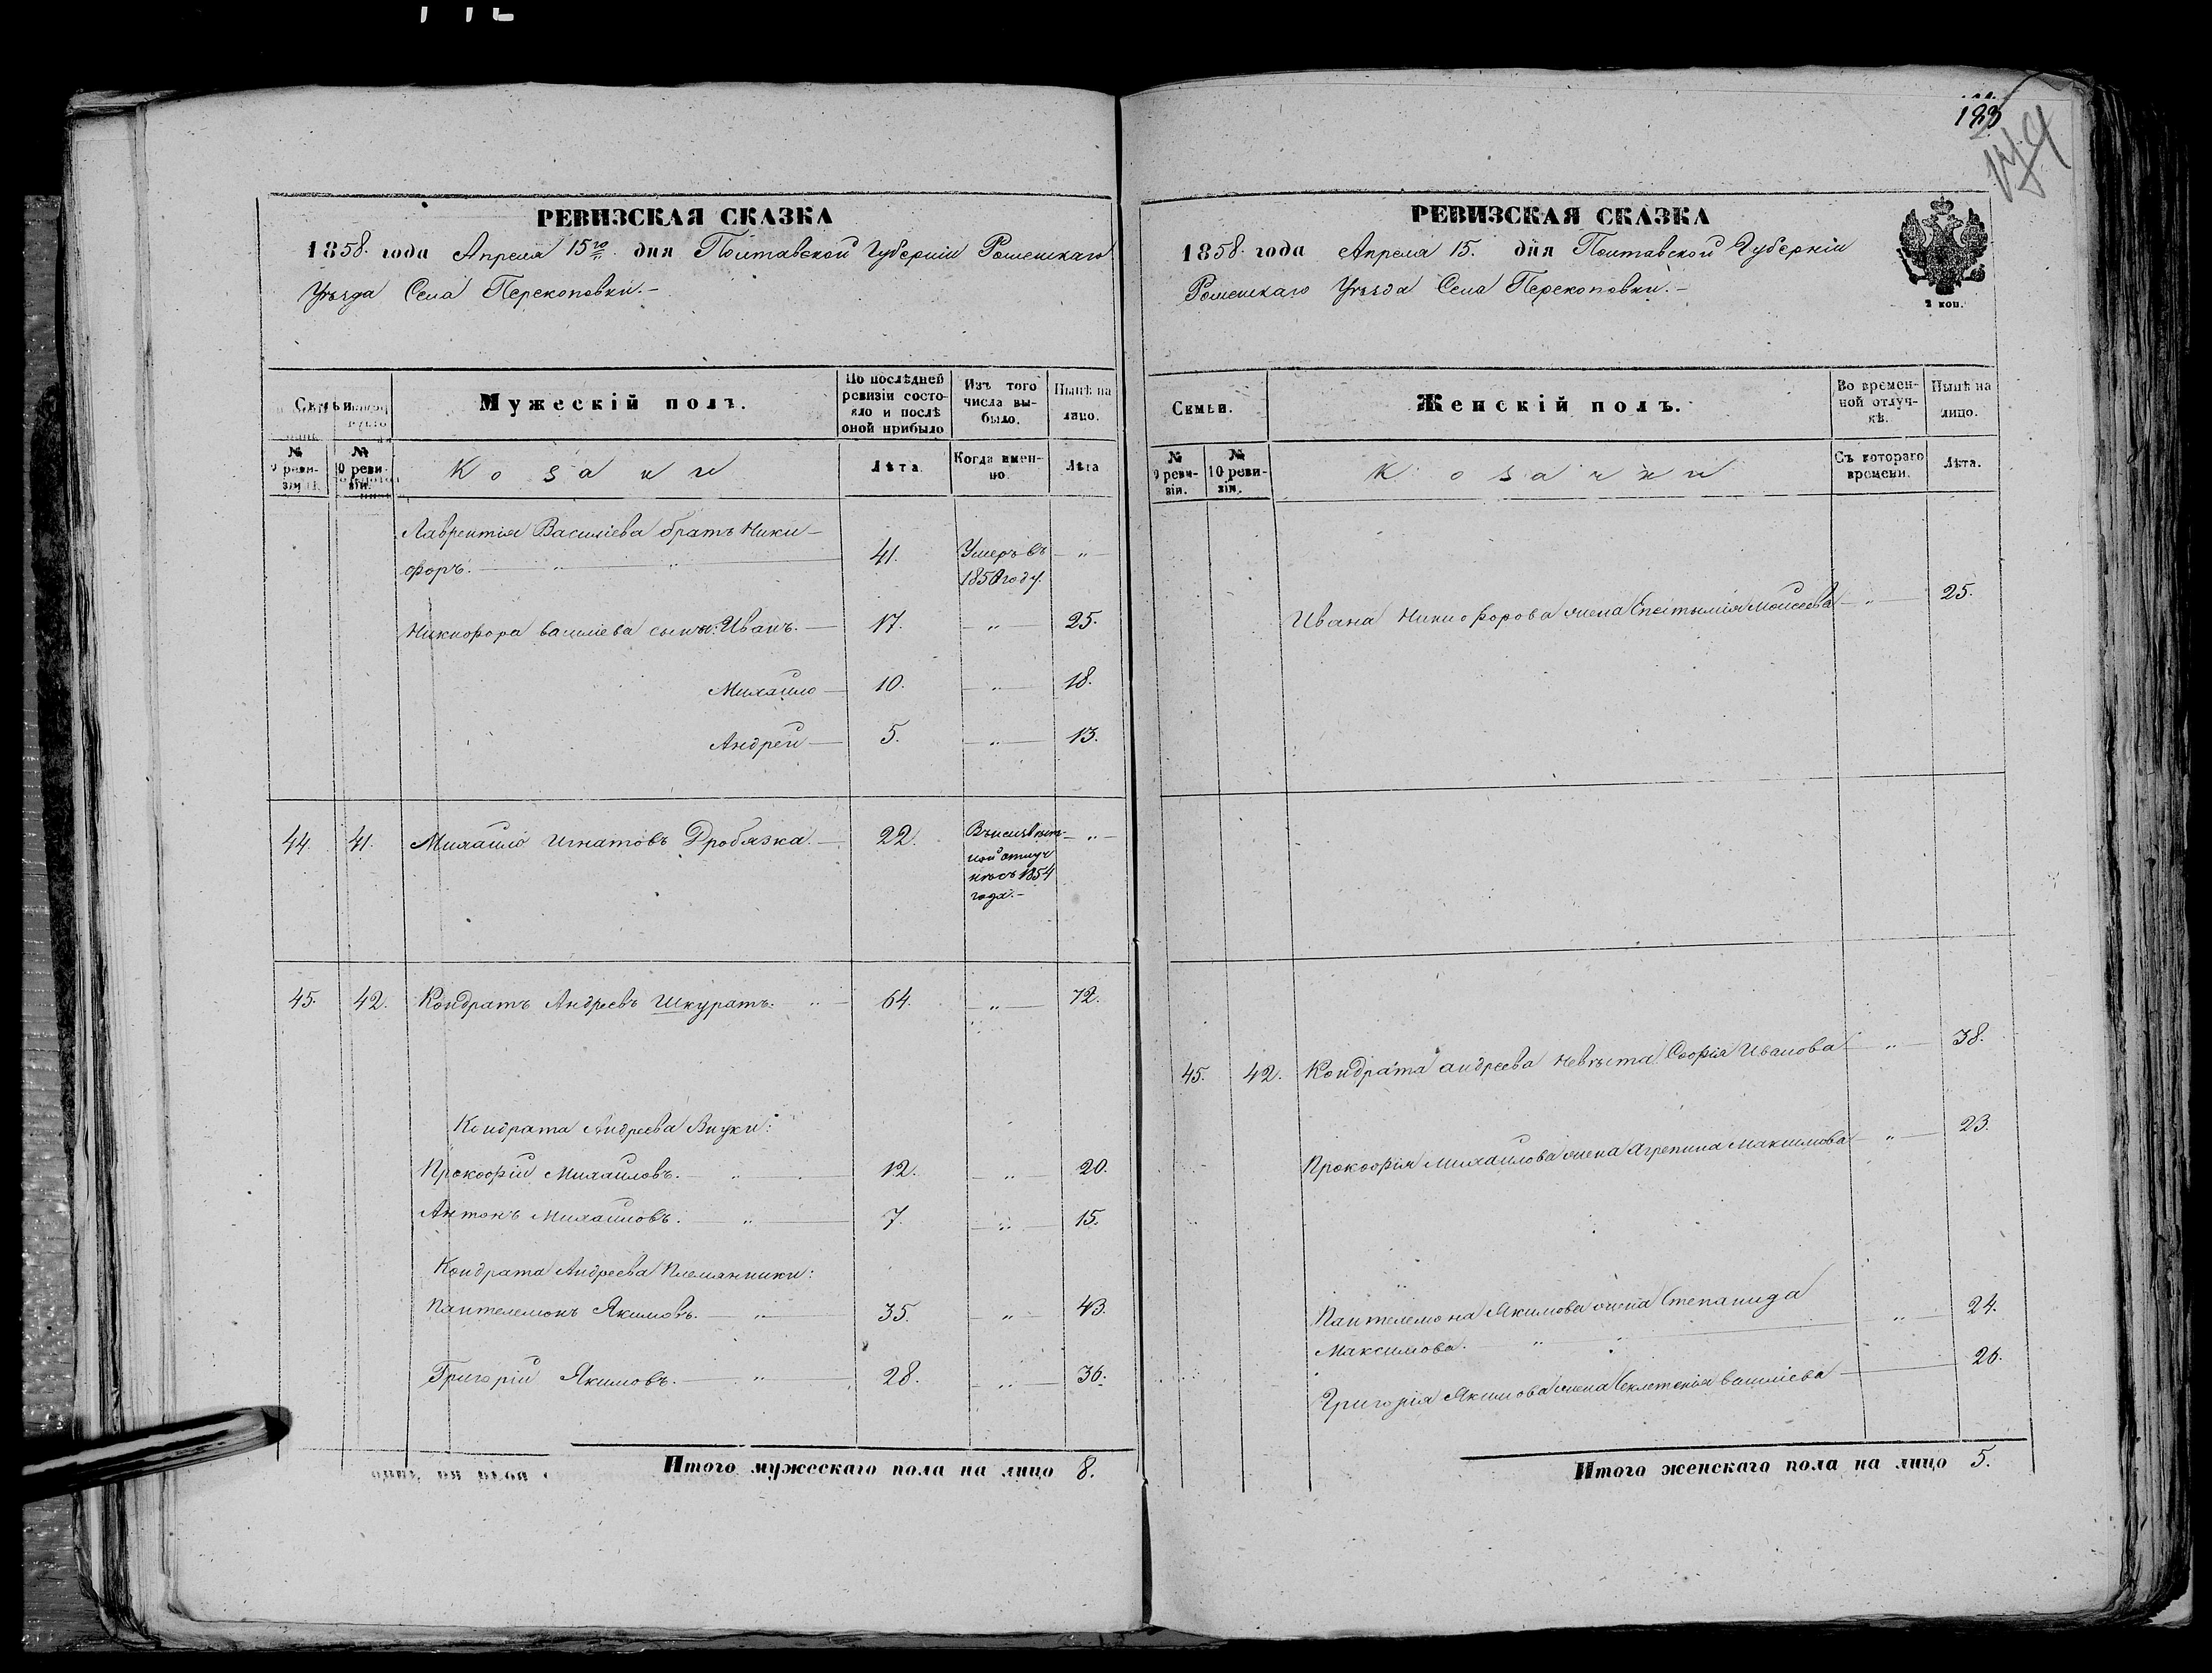 РЕВИЗСКАЯ СКАЗКА
1858. года Апреля 15го дня Полтавской Губерніи Роменскаго
Уѣзда Села Перекоповки.-
Семьи.
Мужескій полъ.
По послѣдней ревизіи состояло и послѣ оной прибыло
Изъ того числа выбыло.
Нынѣ на лицо.
№ 9 ревизіи.
№ 10 ревизіи.
Козаки
Лѣта.
Когда именно.
Лѣта
Лаврентія Василіева братъ Ники-
форъ. 41. Умеръ въ
1850 году.
Никифора василіева сынъ: Иванъ. 17. 25.
Михайло 10. 18.
Андрей 5. 13.
44. 41. Михайло Игнатовъ Дробязка. 22.
отлуч
кѣ съ 1854
года.-
45. 42. Кондратъ Андреевъ Шкуратъ. 64. 72.
Кондрата Андреева Внуки:
Прокофій Михайловъ. 12. 20.
Антонъ Михайловъ. 7. 15.
Кондрата Андреева Племянники:
Пантелемонъ Якимовъ. 35. 43.
Григорій Якимовъ. 28. 36.
Итого мужескаго пола на лицо 8.
183
РЕВИЗСКАЯ СКАЗКА
1858. года Апреля 15. дня Полтавской Губерніи
Роменскаго Уѣзда Села Перекоповки.-
2 коп.
Семьи.
Женскій полъ.
Во временной отлучкѣ.
Нынѣ на лицо.
№ 9 ревизіи.
№ 10 ревизіи.
Козачки
Съ котораго времени.
Лѣта.
Ивана Никифорова жена Епистимія Моисеева 25.
45. 42. Кондрата андреева невѣста Софія Иванова 38.
Прокофія Михайлова жена Агрепина Максимова 23.
Пантелемона Якимова жена Степанида
Максимова. 24.
Григорія Якимова жена Секлетенія василіева 26.
Итого женскаго пола на лицо 5.